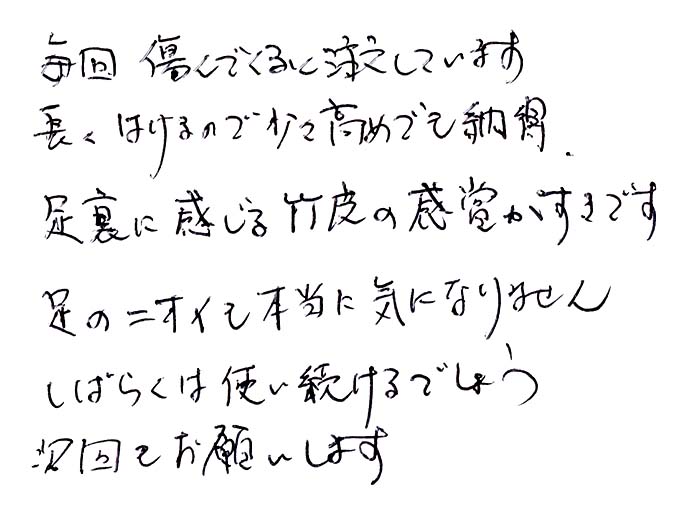 毎回 傷んでくると注文しています
長くはけるので少々高めでも納得.
足裏に感じる竹皮の感覚がすきです
足のニオイも本当に気になりません
しばらくは使い続けるでしょう
次回もお願いします